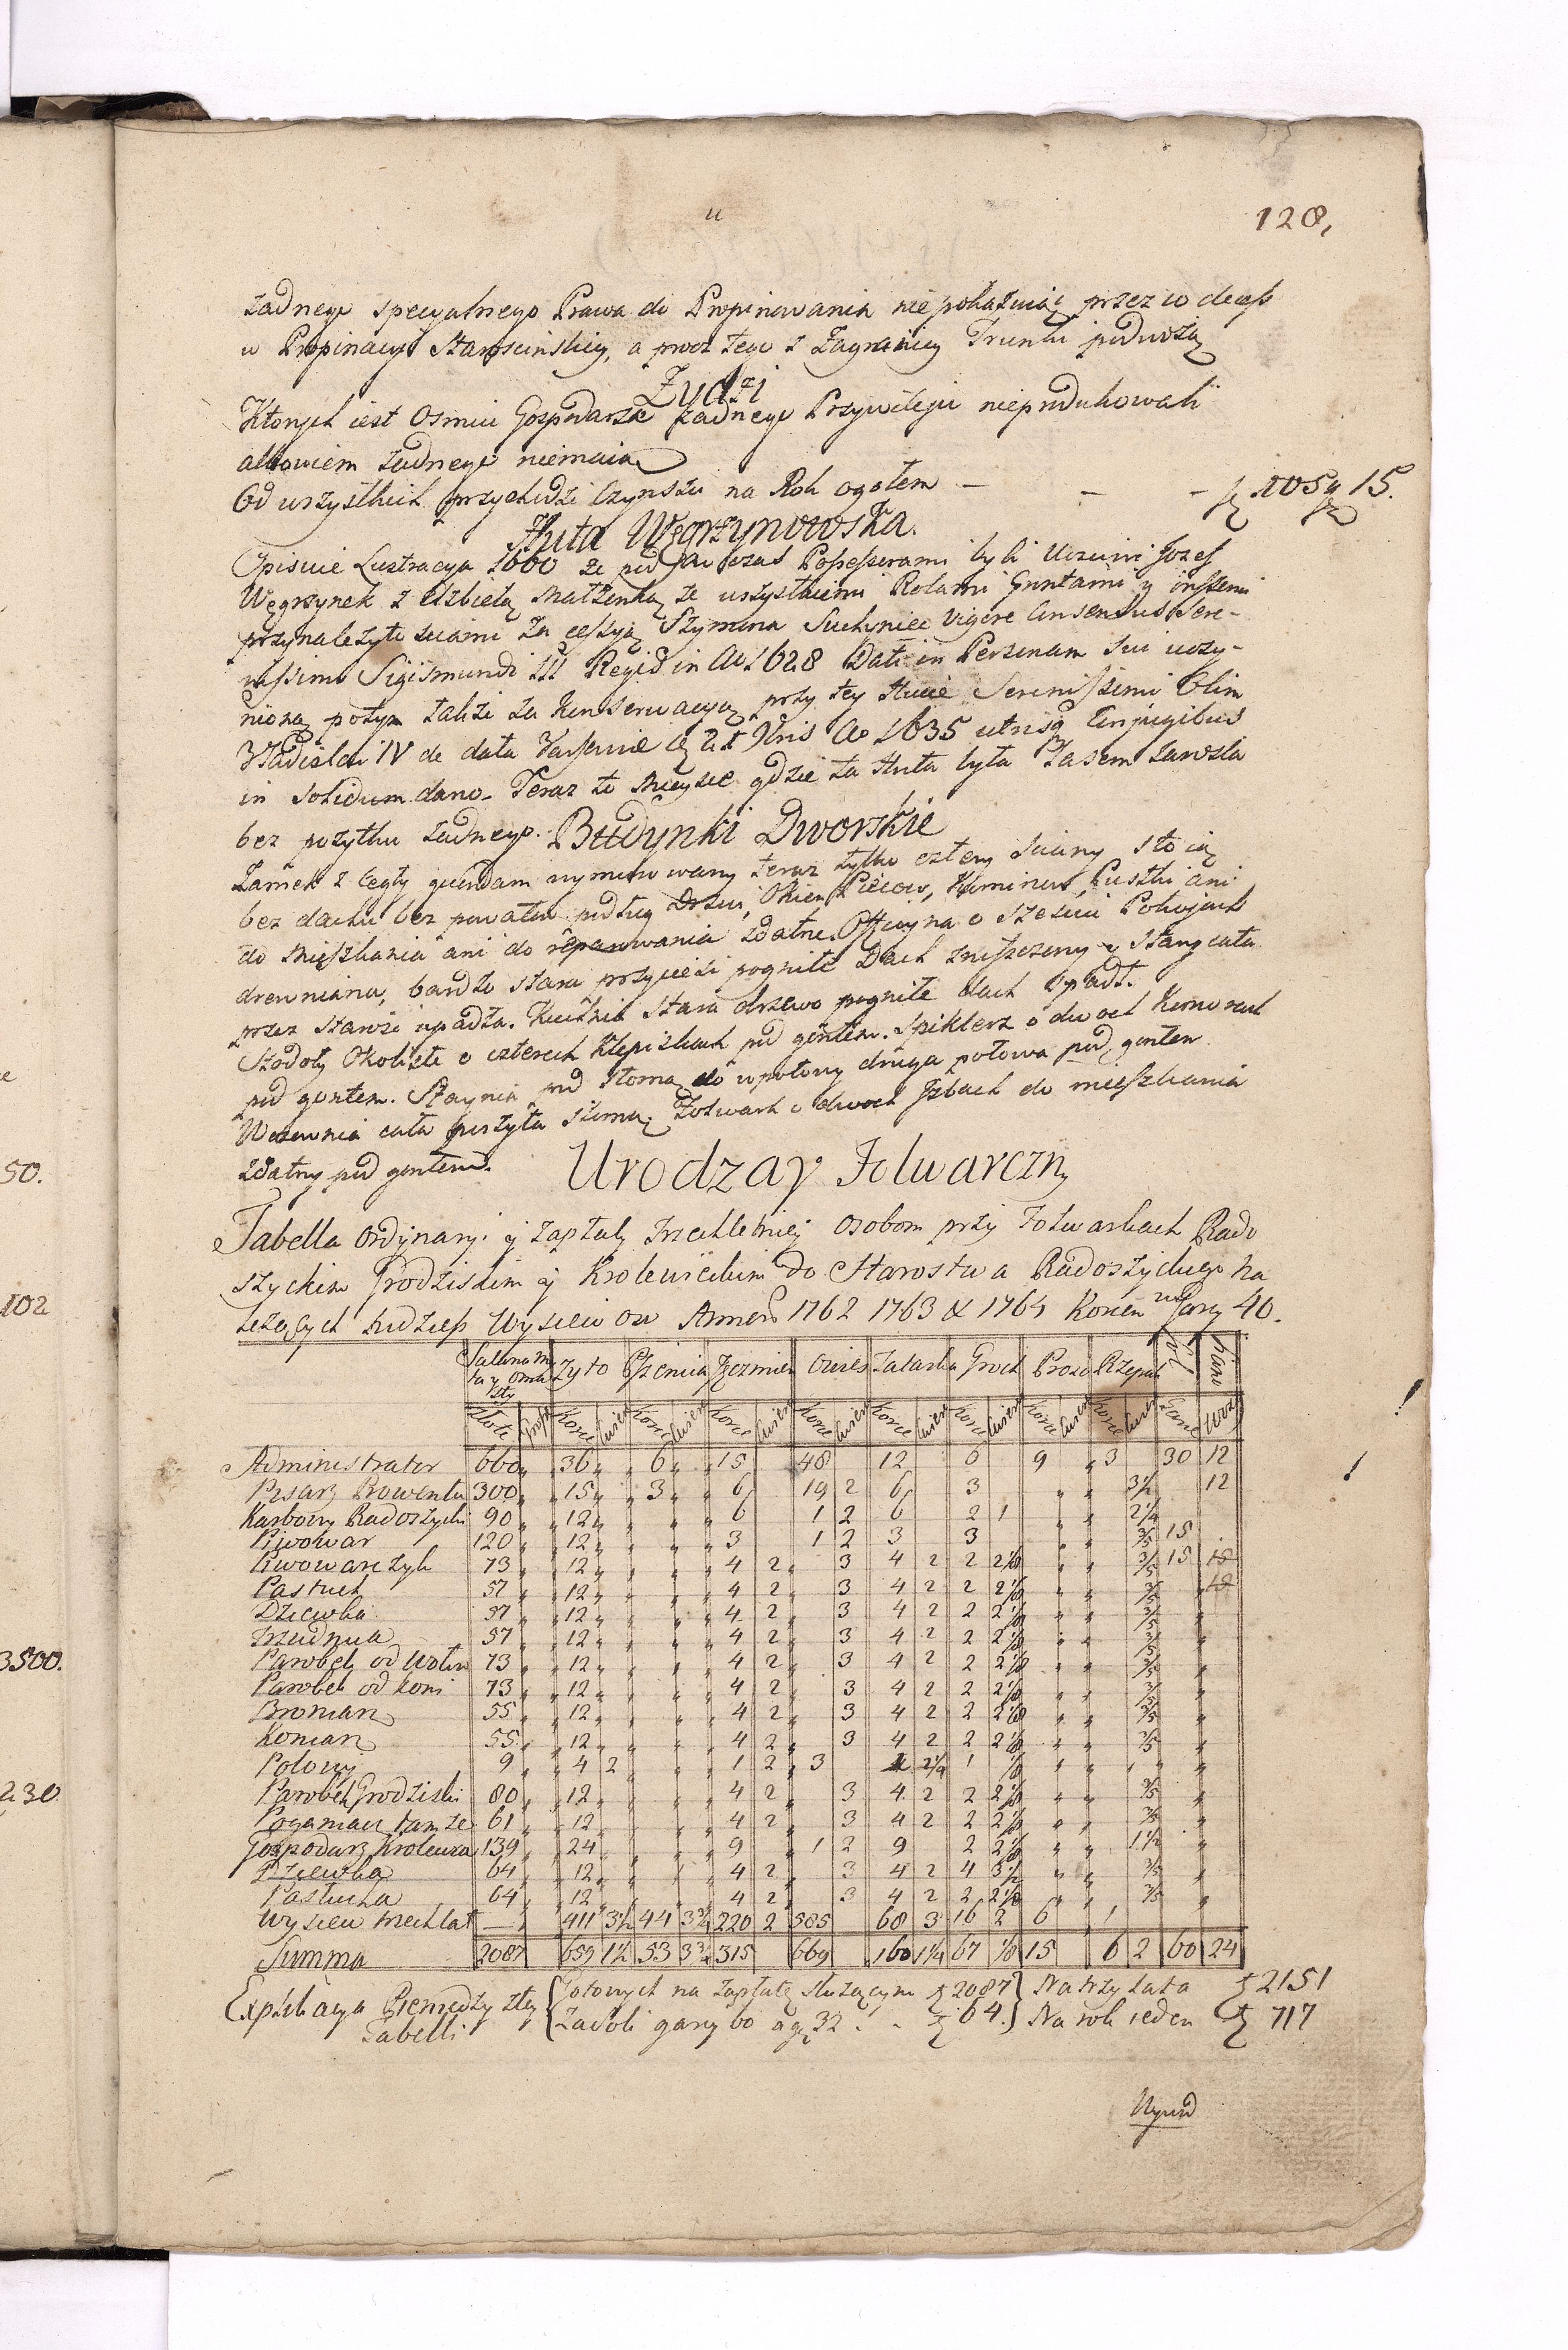 128,
żadnego specyalnego Prawa do Propinowania nie pokazuiąc, przez co decess
w Propinacyi Starościńskiey, a procz tego z Zagranicy Trunki podwożą
Żydzi
Ktorych iest Osmiu Gospodarze żadnego Przywileju nieprodukowali
albowiem żadnego niemaią
Od wszystkich przychodzi Czynszu na Rok ogołem - - - 105 15.
Huta Węgrzynowska.
Opisuie Lustracya 1660 że pod ten czas Possessorami byli Uczciwi Jozef
Węgrzynek z Elzbietą Małzenką ze wszystkiemi Rolami Gruntami y inszemi
przynalezytosciami za cessyą Szymona Suchyniec vigore Consensus Sere-
nissimi Sigismundi III Regis in Ao 1628 Dati in Personam sui uczy-
nioną potym także za Konserwacyą przy tey Hucie Serenissimi Olim
Władislai IV de data Varsavie 21 Ao 1635 utrisq Conjugibus
in solidum dano. Teraz to mieysce gdzie ta Huta była Lasem zarosła
bez pożytku żadnego. Budynki Dworskie
Zamek z Cegły quondam wymurowany teraz tylko cztery sciany stoią
bez dachu bez powałow podłog Drzwi, Okien Piecow, Kominow, Pustki ani
do mieszkania ani do reparowania zdatne. Officyna o szesciu Pokojach
drewniana, bardzo stara przyciesi pogniłe Dach zniszczony y Stary cała
przez starość upadła. Kuchnia Stara drzewo pogniłe dach opadł.
Stodoły Okoliste o czterech Klepiskach pod gontem. Spiklerz o dwoch Komorach
pod gontem. Staynia pod słomą do wpołowy druga połowa pod gontem
Wozownia cała poszyta słomą. Folwark o dwoch Izbach do mieszkania
zdatny pod gontem.
Urodzay Folwarczny
Tabella Ordynaryi y zapłaty trzechletniey osobom przy Folwarkach Rado
szyckim Grodziskim y Krolewieckim do Starostwa Radoszyckiego na
leżących tudzież Wysiewow Annor 1762 1763 & 1764 Korzec Garcy 40.
Żyto Pszenica Jęczmień Owies Tatarka Groch Proso Rzepak Sol Siano
Złote Grosz Korce Cwier Korce Cwier Korce Cwier Korce Cwier Korce Cwier Korce Cwier Korce Cwier Korce Cwier Garce Wozy
Administrator 660 36 6 15 48 12 6 9 3 30 12
Pisarz Prowentu 300 15 3 6 19 2 6 3 3½ 12
Karbowy Radoszycki 90 12 6 1 2 6 2 1 2¼
Piwowar 120 12 3 1 2 3 3 3/5 15
Piwowarczyk 73 12 4 2 3 4 2 2 2⅛ 3/5 15
Pastuch 57 12 4 2 3 4 2 2 2⅛ 3/5
Dziewka 57 12 4 2 3 4 2 2 2⅛ 3/5
57 12 4 2 3 4 2 2 2⅛ 3/5
Parobek od Wołow 73 12 4 2 3 4 2 2 2⅛ 3/5
Parobek od Koni 73 12 4 2 3 4 2 2 2⅛ 3/5
Broniarz 55 12 4 2 3 4 2 2 2⅛ 3/5
Koniarz 55 12 4 2 3 4 2 2 2⅛ 3/5
Polowy 9 4 2 1 2 3 1 2¼ 1 ⅛
Parobek Grodziski 80 12 4 2 3 4 2 2 2⅛ 3/5
Poganiacz tamże 61 12 4 2 3 4 2 2 2⅛ 3/5
Gospodarz Krolewca 139 24 9 1 2 9 2 2⅛ 1½
Dziewka 64 12 4 2 3 4 2 4 3½ 3/5
Pastucha 64 12 4 2 3 4 2 2 2⅛ 3/5
Wysiew trzechlat — 411 3½ 44 3¾ 220 2 585 68 3 16 2 6 1
Summa 2087 659 1½ 53 3¾ 315 669 160 1¼ 67 ⅛ 15 6 2 60 24
Explikacya Pieniędzy z tey Tabelli
Gotowych na zapłatę służącym 2087 Na trzy Lata 2151
Za Soli garcy 60 a gr 32 . . 64. Na rok ieden 717
50.
102
3500.
230